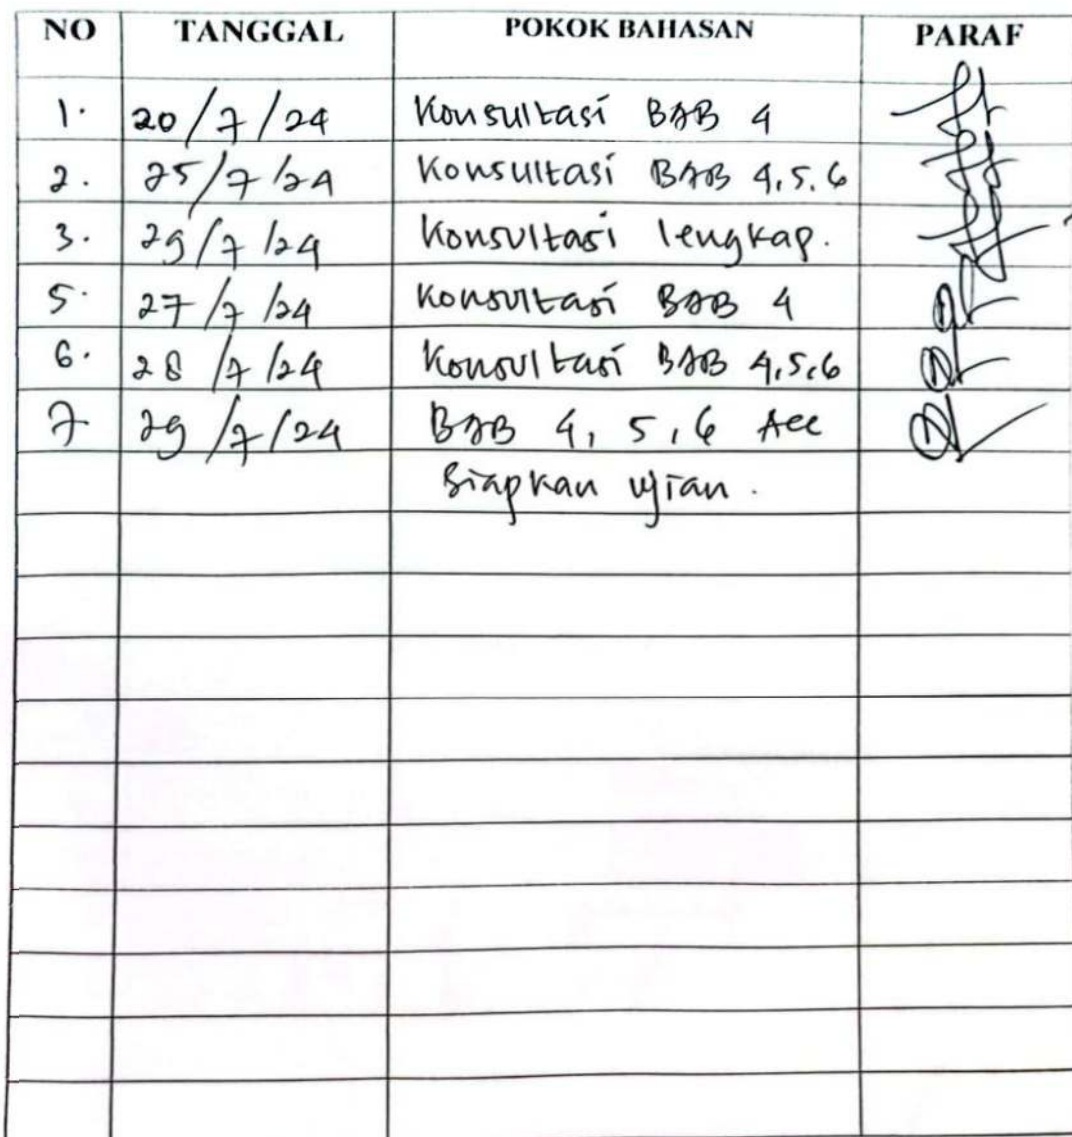 NO TANGGAL POKOK BAHASAN PARAF
1. 20/7/24 Konsultasi BAB 4
2. 25/7/24 Konsultasi BAB 4,5,6
3. 29/7/24 Konsultasi lengkap.
5. 27/7/24 Konsultasi BAB 4
6. 28/7/24 Konsultasi BAB 4,5,6
7 29/7/24 BAB 4, 5, 6 Acc
Siapkan ujian.